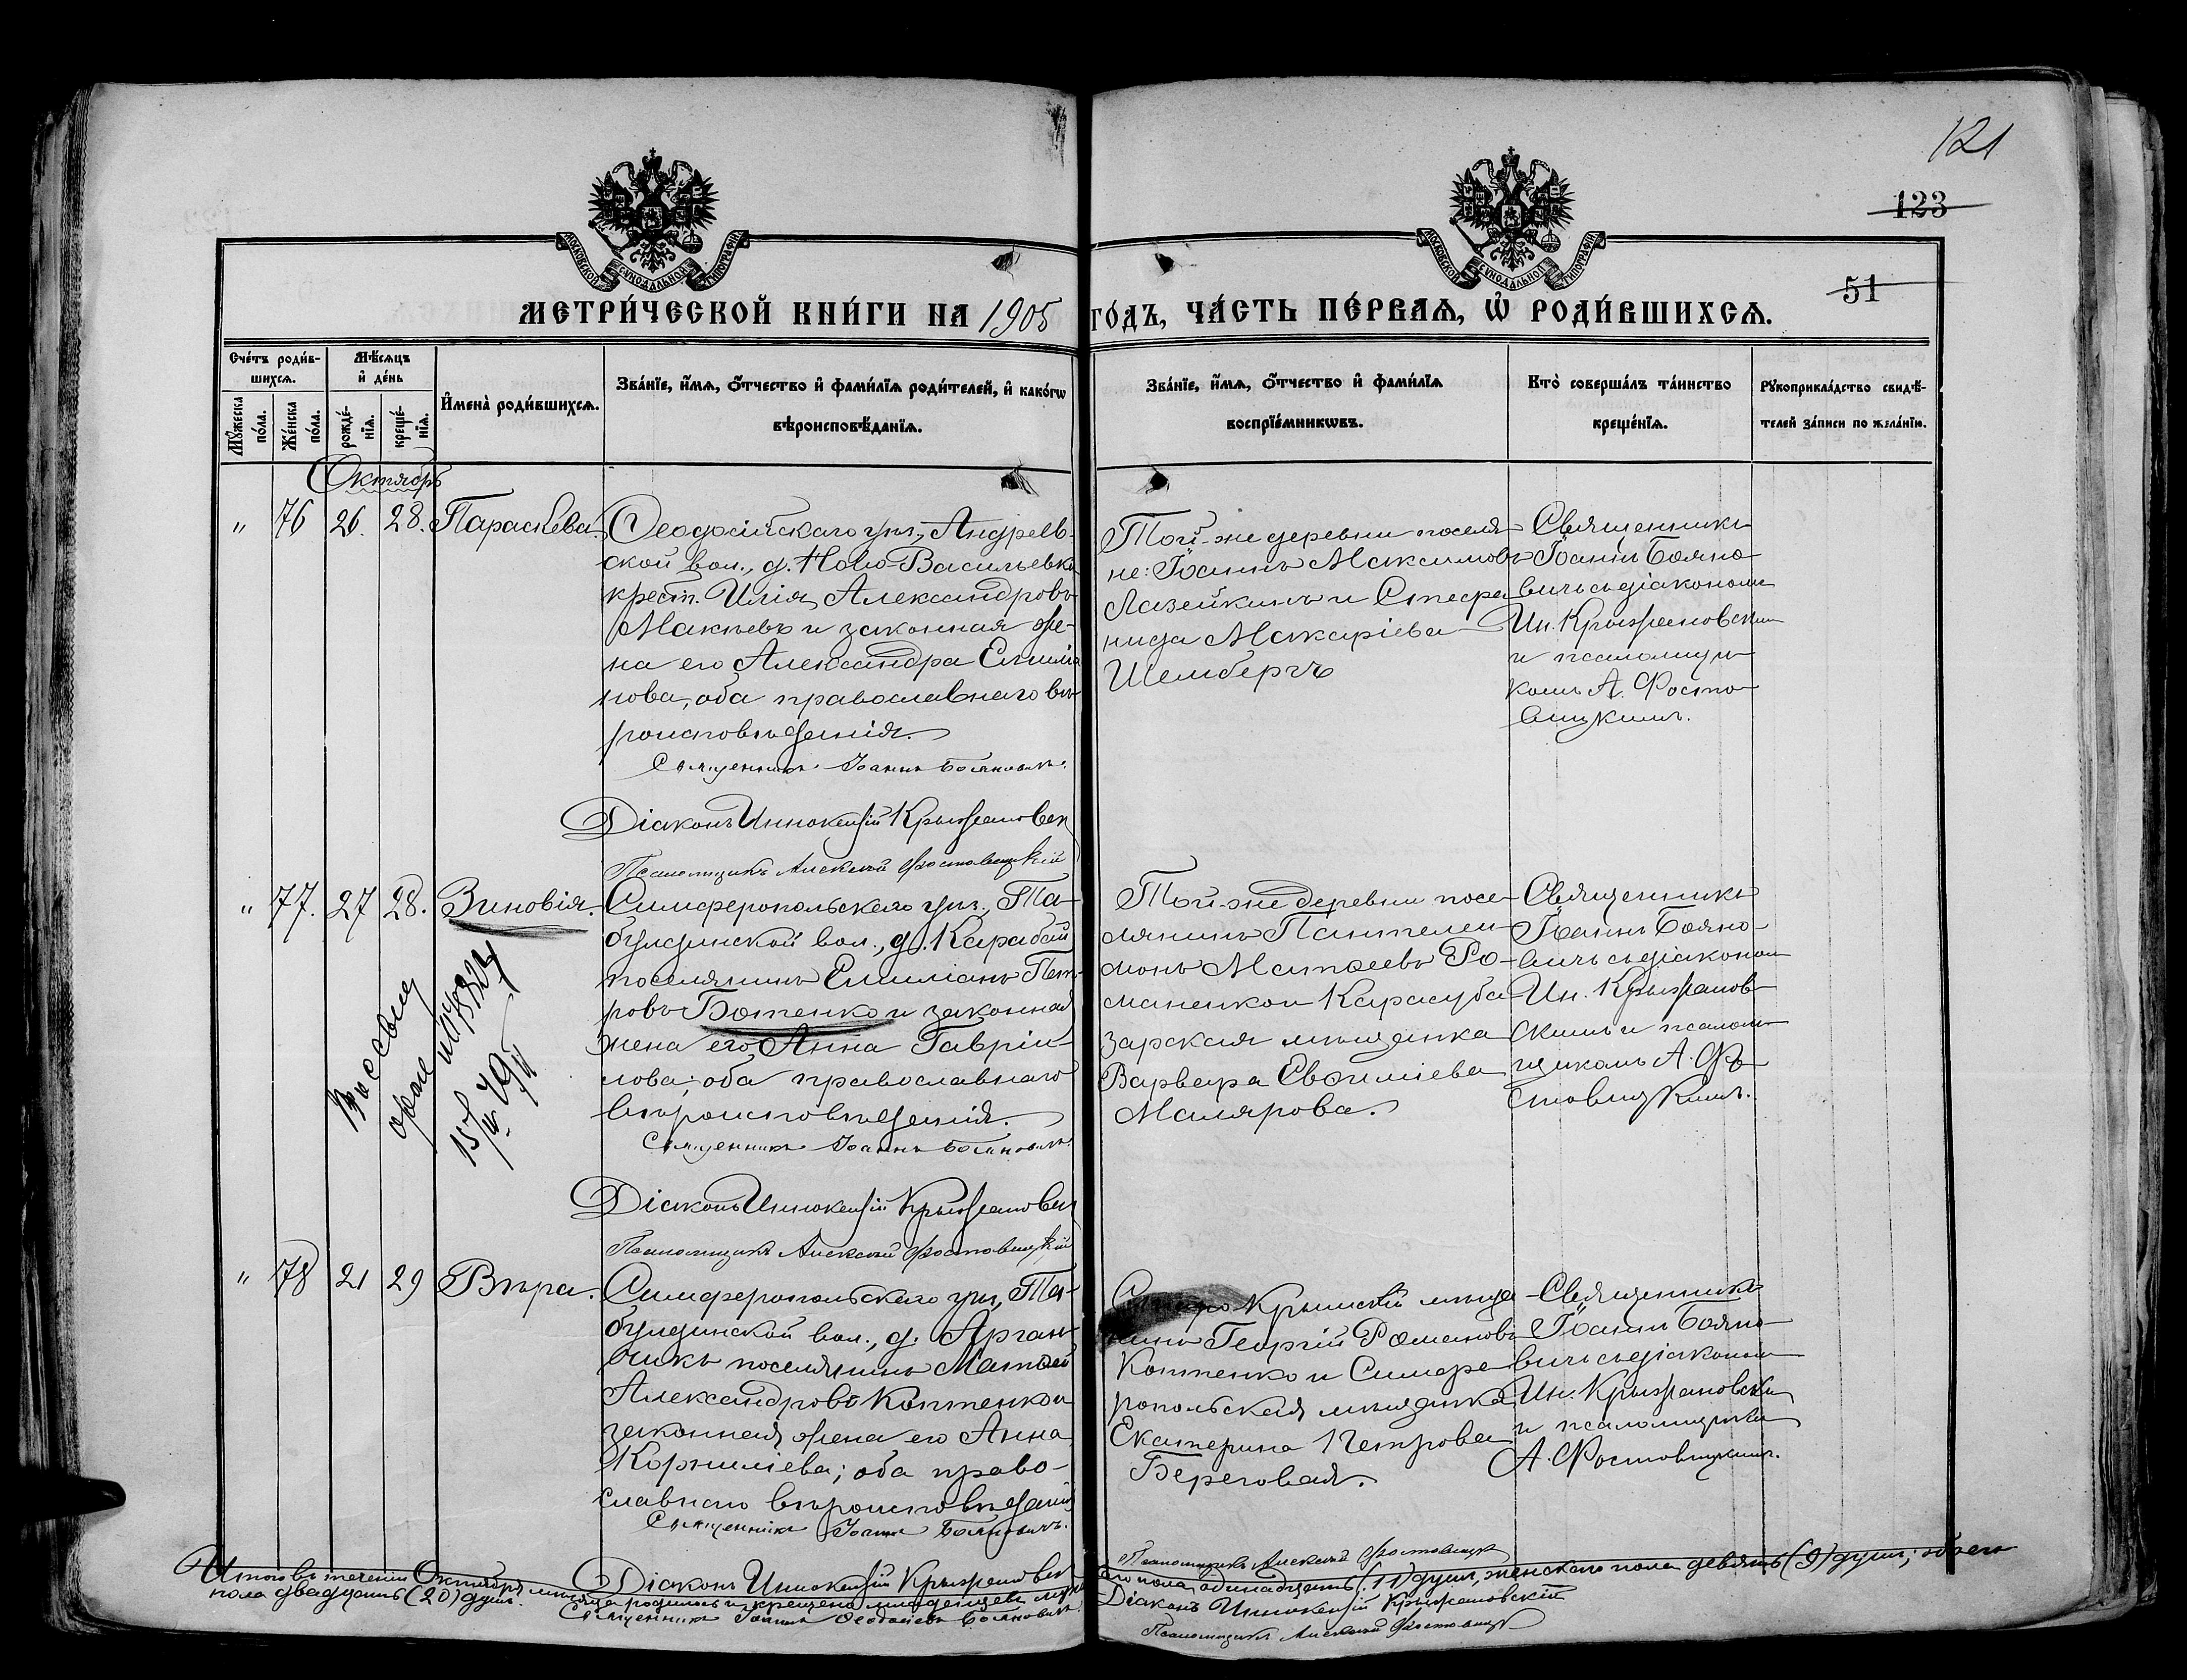 121
123
51
МОСКОВСКОЙ СѴНОДАЛЬНОЙ ТИПОГРАФІИ
МОСКОВСКОЙ СѴНОДАЛЬНОЙ ТИПОГРАФІИ
МЕТРИ́ЧЕСКОЙ КНИ́ГИ НА 1905 ГО́ДЪ, ЧА́СТЬ ПЕ́РВАѦ, Ѡ҆ РОДИ́ВШИХСѦ.
Сче́тъ роди́в-
шихсѧ.
Мѣ́сѧцъ
и҆ де́нь
Мꙋ́жеска
по́ла.
Же́нска
по́ла.
рожде́-
нїѧ.
креще́-
нїѧ.
И҆мена̀ роди́вшихсѧ.
Зва́нїе, и҆́мѧ, ѻ҆́тчество и҆ фами́лїѧ роди́телей, и҆ како́гѡ
вѣроисповѣ́данїѧ.
Зва́нїе, и҆́мѧ, ѻ҆́тчество и҆ фами́лїѧ
воспрїе́мникѡвъ.
Кто̀ соверша́лъ та́инство
креще́нїѧ.
Рꙋкоприкла́дство свидѣ́-
телей за́писи по жела́нїю.
Октябрь
" 76 26. 28. Параскева.
Ѳеодосійскаго уѣз., Андреев-
ской вол., д. Ново-Васильевка
крест. Илія Александровъ
Макѣевъ и законная же-
на его Александра Емилiа
нова, оба православнаго вѣ-
роисповѣданія.
Священникъ Іоаннъ Бояновичъ.
Діаконъ Иннокентій Крыжановск
Псаломщикъ Алексѣй Фостовицкій
Той-же деревни поселя
не: Іоаннъ Максимовъ
Лазейкинъ и Стефа
нида Макаріева
Шембергъ
Священникъ
Іоаннъ Бояно-
вичъ съ діакономъ
Ин. Крыжановским
и псаломщи-
комъ А. Фосто-
вицкимъ.
" 77. 27 28. Зиновія.
Симферопольскаго уѣз., Та-
булдинской вол., д. Карабай
поселянинъ Емиліанъ Пет-
ровъ Ботенко и законная
жена его, Анна Гаврiи-
лова; оба православнаго
вѣроисповѣданія.
Священникъ Іоаннъ Бояновичъ.
Діаконъ Иннокентій Крыжановск
Псаломщикъ Алексѣй Фостовицкій
Той-же деревни посе-
лянинъ Пантелеи-
монъ Матѳеевъ Ро-
маненко и Карасуба
зарская мѣщанка
Варвара Евѳиміева
Малярова.
Священникъ
Іоаннъ Бояно-
вичъ съ діакономъ
Ин. Крыжанов-
скимъ и псалом-
щикомъ А. Фо-
стовицкимъ.
" 78 21 29 Вѣра.
Симферопольскаго уѣз., Та-
булдинской вол., д. Арган-
чикъ поселянинъ Матѳей
Александровъ Коттенко и
законная жена его Анна
Корниліева; оба право-
славнаго вѣроисповѣданія
Священникъ Іоаннъ Бояновичъ.
Діаконъ Иннокентій Крыжановск
Старо-Крымскій мѣща
нинъ Георгій Романовъ
Коттенко и Симфе
ропольская мѣщанка
Екатерина Петрова
Береговая.
Священникъ
Іоаннъ Бояно-
вичъ съ діакономъ
Ин. Крыжановским
и псаломщикомъ
А. Фостовицкимъ.
Псаломщикъ Алексѣй Фостовицкій
Итого въ теченіи Октября мѣсяца родилось и крещено младенцевъ мужска
го пола одинадцать (11) душъ, женскаго пола девять (9) душъ; обоего
пола двадцать (20) душъ.
Священникъ Іоаннъ Ѳеодосіевъ Бояновичъ.
Діаконъ Иннокентій Крыжановскій
Псаломщикъ Алексѣй Фостовицк